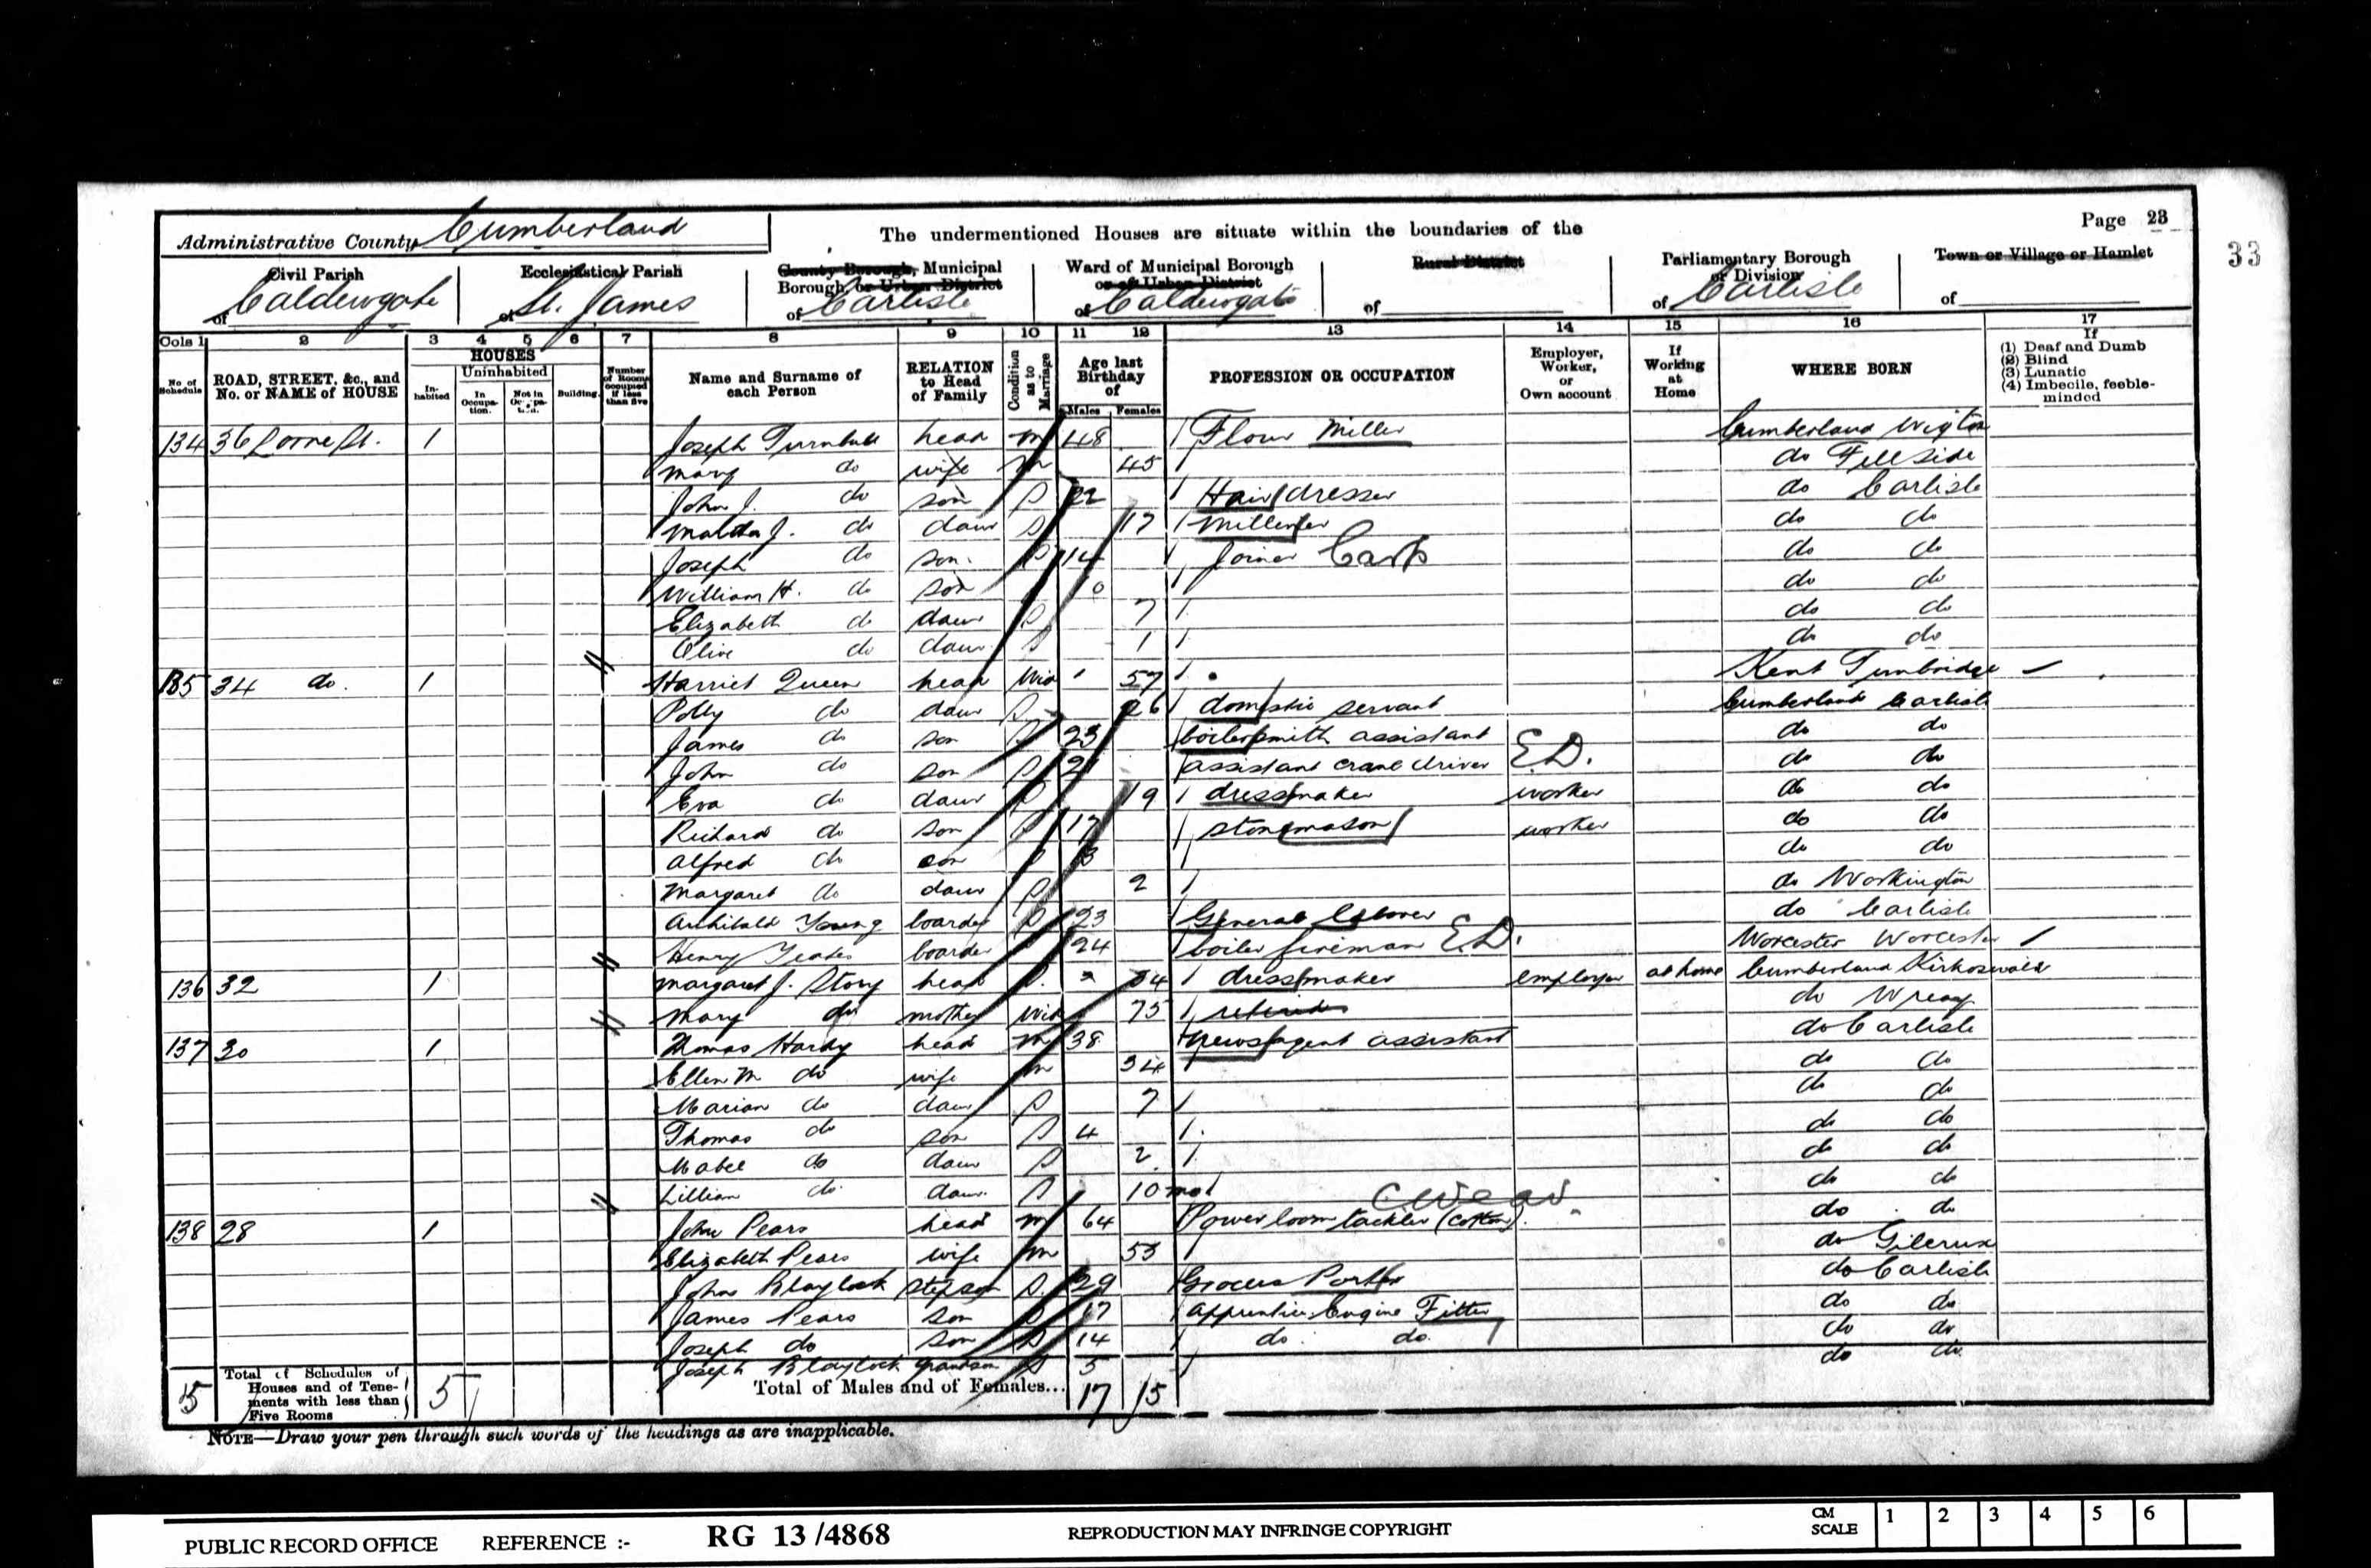 Page 23
33
Administrative County Cumberland
The undermentioned Houses are situate within the boundaries of the
Civil Parish of Caldewgate
Ecclesiastical Parish of St. James
County Borough, Municipal Borough, or Urban District of Carlisle
Ward of Municipal Borough or of Urban District of Caldewgate
Rural District of
Parliamentary Borough or Division of Carlisle
Town or Village or Hamlet of
Cols 1 2 3 4 5 6 7 8 9 10 11 12 13 14 15 16 17
No of Schedule
ROAD, STREET, &c., and No. or NAME of HOUSE
HOUSES
Inhabited
Uninhabited
In Occupation.
Not in Occupation.
Building.
Number of Rooms occupied if less than five
Name and Surname of each Person
RELATION to Head of Family
Condition as to Marriage
Age last Birthday of
Males Females
PROFESSION OR OCCUPATION
Employer, Worker, or Own account
If Working at Home
WHERE BORN
If
(1) Deaf and Dumb
(2) Blind
(3) Lunatic
(4) Imbecile, feeble-minded
134 36 Lorne St. 1 Joseph Turnbull head m 48 Flour Miller Cumberland Wigton
Mary do wife m 45 do Fellside
John J. do son S 22 Hair dresser do Carlisle
J. do daur S 17 do do
Joseph do son S 14 Joiner Carp do do
William H. do son do do
Elizabeth do daur S 7 do do
Olive do daur S 1 do do
135 34 do. 1 Harriet Queen head Wid 57 Kent Tunbridge
Polly do daur S 26 domestic servant Cumberland Carlisle
James do son S 23 boilersmith assistant do do
John do son S 21 assistant crane driver E.D. do do
Eva do daur S 19 dressmaker worker do do
Richard do son S 17 stonemason worker do do
Alfred do son S do do
Margaret do daur S 2 do Workington
Archibald Young boarder S 23 General Laborer do Carlisle
Henry Yeates boarder 24 boiler fireman E.D. Worcester Worcester
136 32 1 Margaret J. Story head S. 34 dressmaker employer at home Cumberland Kirkoswald
Mary do mother Wid 75 retired do Wreay
137 30 1 Thomas Hardy head m 38 newsagent assistant do Carlisle
Ellen M do wife m 34 do do
Marian do daur S 7 do do
Thomas do son S 4 do do
Mabel do daur S 2 do do
Lillian do daur. S 10 mos do do
C Weav.
138 28 1 John Pears head m 64 Powerloom tackler (cotton). do do
Elizabeth Pears wife m 53 do Gilcrux
John Blaylock stepson S. 29 Grocers Porter do Carlisle
James Pears son S 17 apprentice Engine Fitter do do
Joseph do son S 14 do do do do
Joseph Blaylock grandson S 5 do do
5 Total of Schedules of Houses and of Tenements with less than Five Rooms 5 Total of Males and of Females... 17 15
NOTE—Draw your pen through such words of the headings as are inapplicable.
PUBLIC RECORD OFFICE REFERENCE :- RG 13 /4868 REPRODUCTION MAY INFRINGE COPYRIGHT CM SCALE 1 2 3 4 5 6